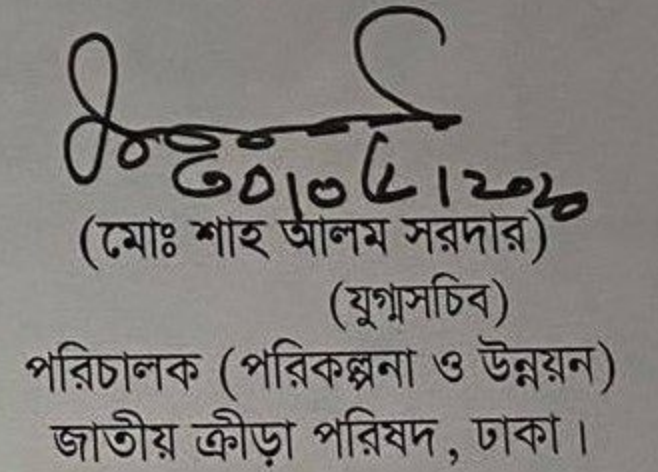 (মোঃ শাহ আলম সরদার)
(যুগ্মসচিব)
পরিচালক (পরিকল্পনা ও উন্নয়ন)
জাতীয় ক্রীড়া পরিষদ, ঢাকা।